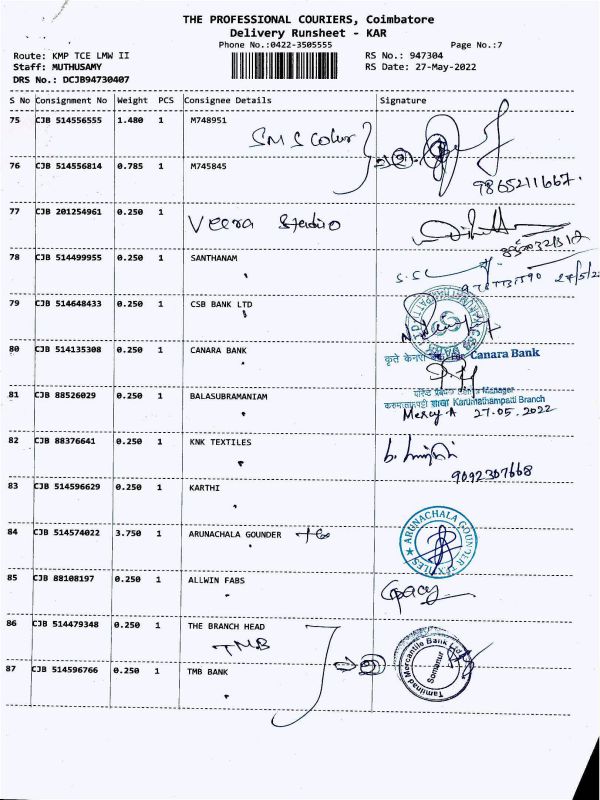 THE PROFESSIONAL COURIERS, Coimbatore
Delivery Runsheet - KAR
Phone No.:0422-3505555 Page No.:7
Route: KMP TCE LMW II RS No.: 947304
Staff: MUTHUSAMY RS Date: 27-May-2022
DRS No.: DCJB94730407
S No Consignment No Weight PCS Consignee Details Signature
75 CJB 514556555 1.480 1 M748951
SMS Colour
76 CJB 514556814 0.785 1 M745845
9865211667.
77 CJB 201254961 0.250 1 Veera Studio
78 CJB 514499955 0.250 1 SANTHANAM
79 CJB 514648433 0.250 1 CSB BANK LTD
80 CJB 514135308 0.250 1 CANARA BANK
Canara Bank
81 CJB 88526029 0.250 1 BALASUBRAMANIAM
Manager
शाखा Karumathampatti Branch
Mercy A 27.05.2022
82 CJB 88376641 0.250 1 KNK TEXTILES
9092307668
83 CJB 514596629 0.250 1 KARTHI
84 CJB 514574022 3.750 1 ARUNACHALA GOUNDER
ARUNACHALA GOUNDER TEXTILES
85 CJB 88108197 0.250 1 ALLWIN FABS
86 CJB 514479348 0.250 1 THE BRANCH HEAD
TMB
Tamilnad Mercantile Bank Ltd
Somanur
87 CJB 514596766 0.250 1 TMB BANK